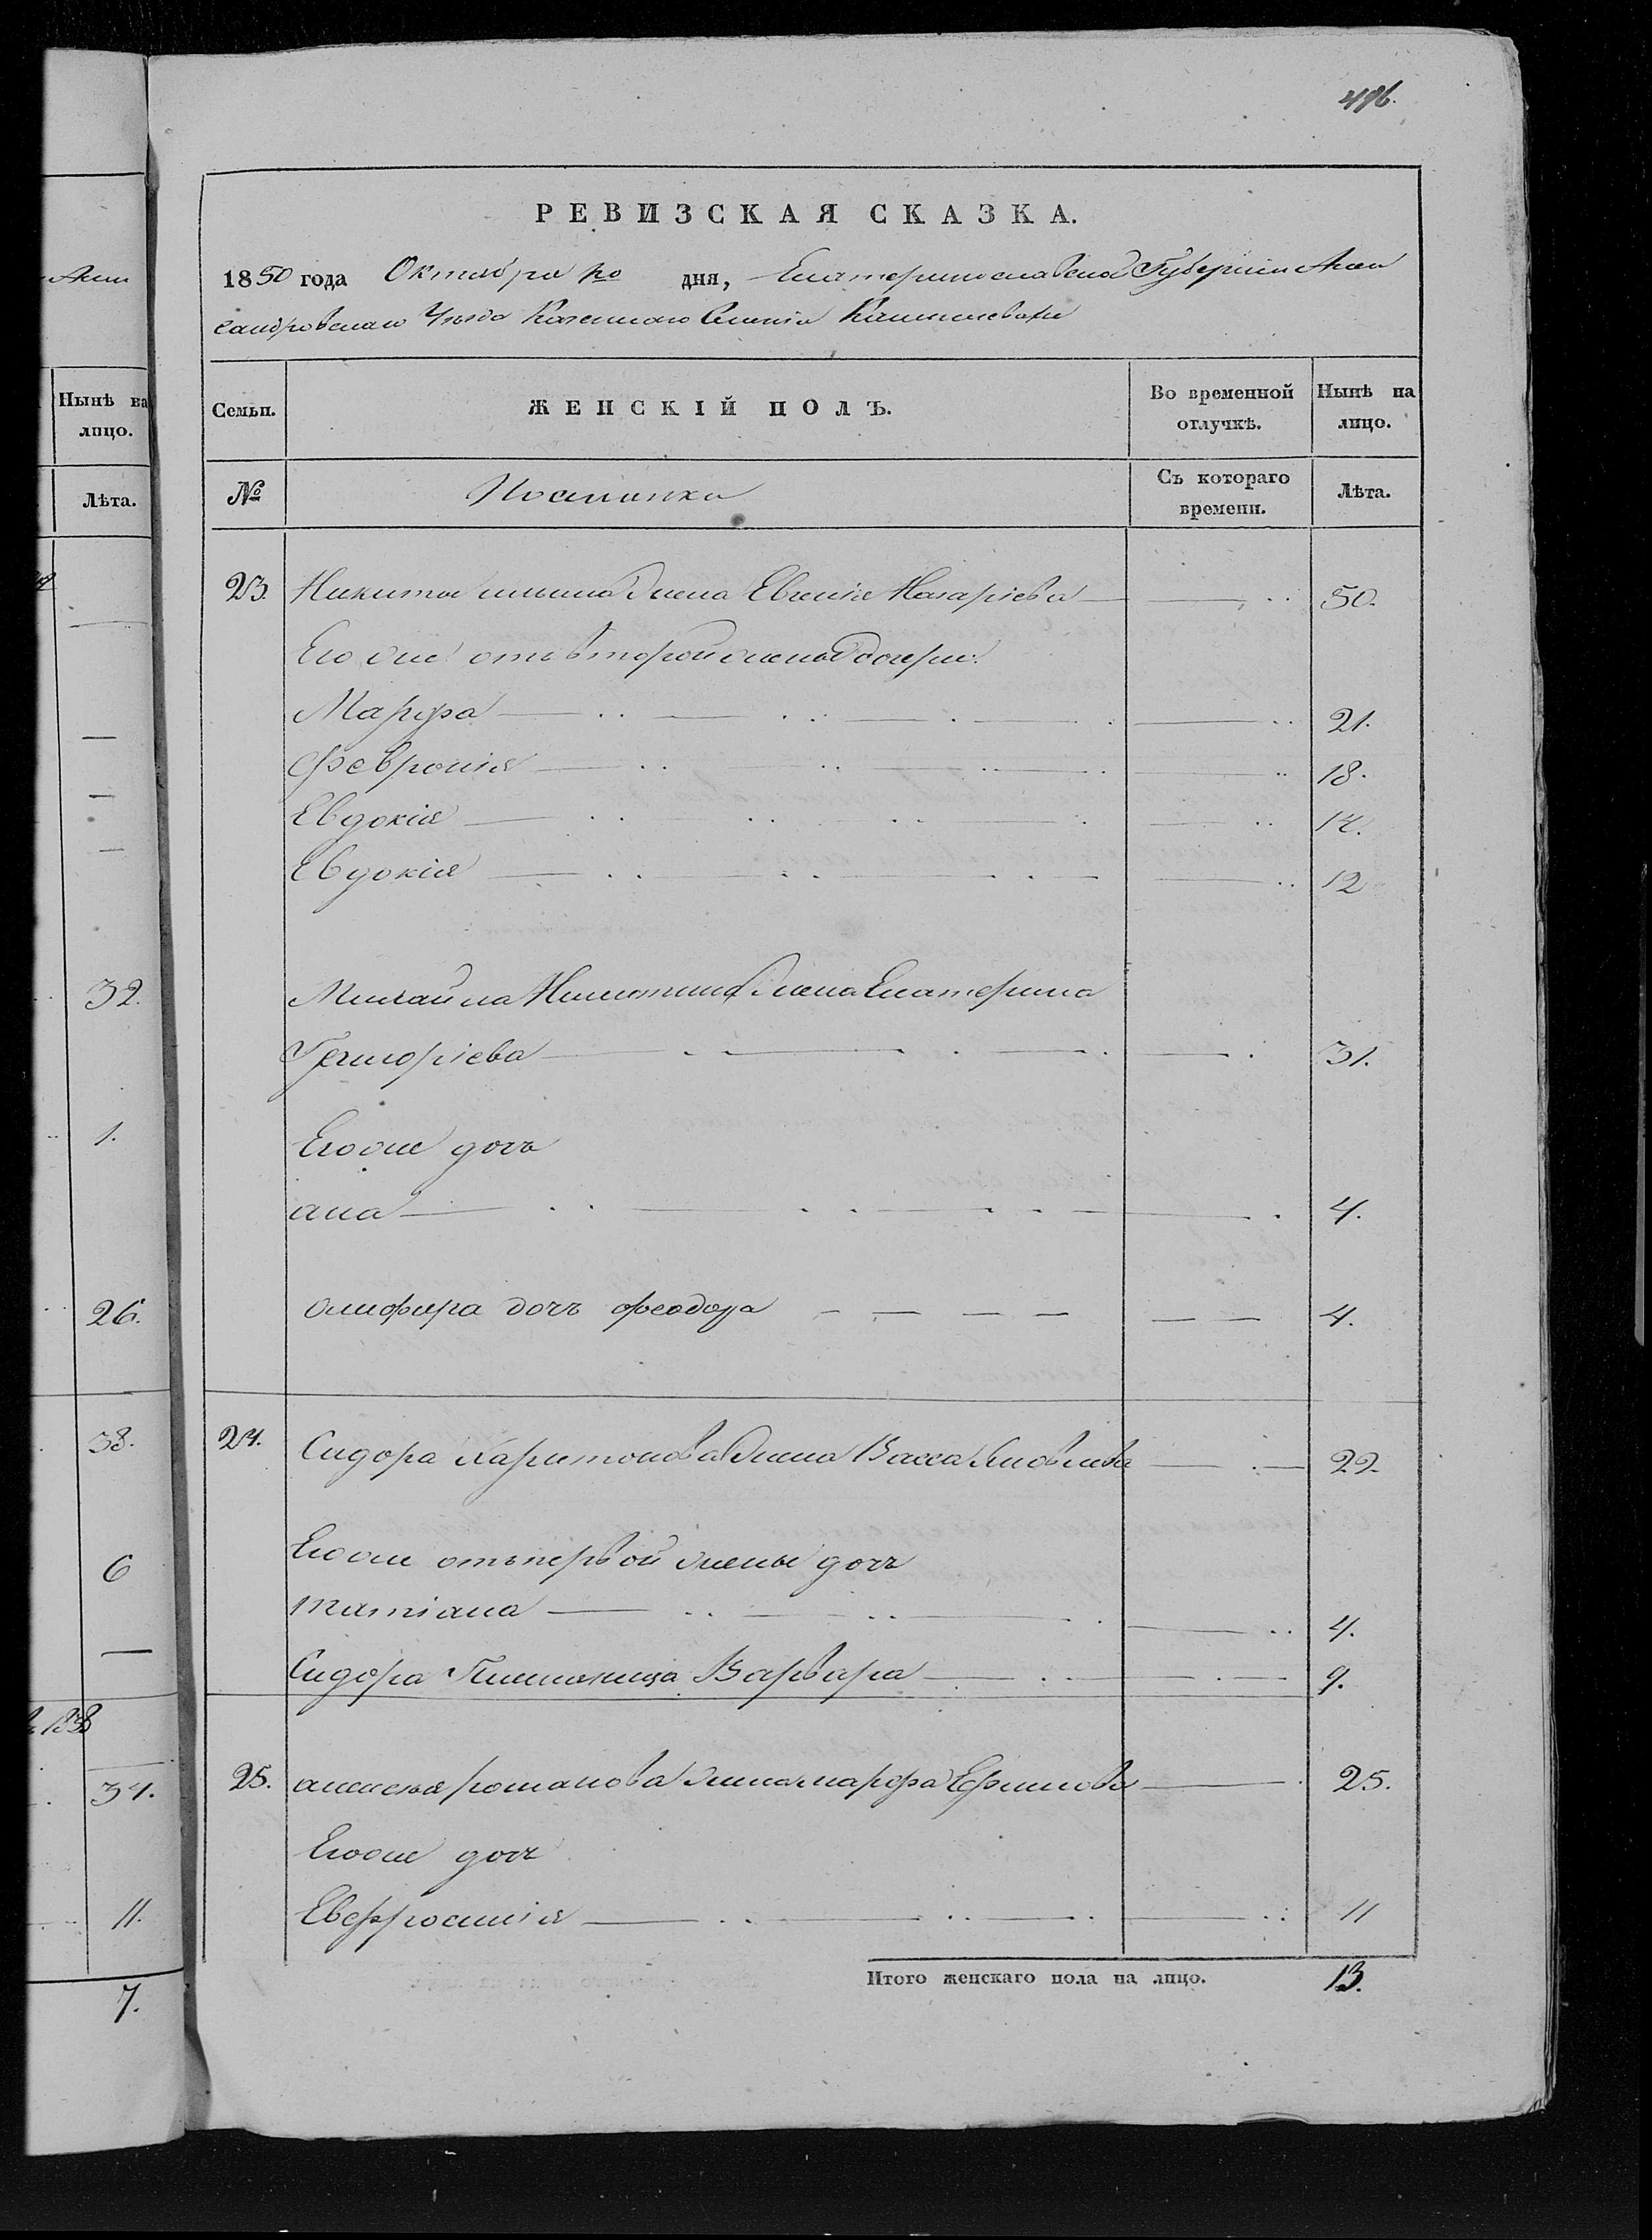 496.
РЕВИЗСКАЯ СКАЗКА.
1850 года Октября го дня, Екатеринославской Губернии Алек
сандровскаго Уезда Казеннаго Селения Камышевахи
Нынѣ на лицо.
Лѣта.
32.
1.
26.
38.
6
34.
11.
7.
Семьи.
ЖЕНСКІЙ ПОЛЪ.
Во временной отлучкѣ.
Нынѣ на лицо.
№
Поселянки
Съ котораго времени.
Лѣта.
23. Никиты ильина жена Евгенія Назаріева 50.
Его же отъ второй жены дочери:
Марфа 21.
Февронія 18.
Евдокія 14.
Евдокія 12
Михайла Никитина жена Екатерина
Григоріева 31.
Его же дочь
ана 4.
олифира дочь феодора 4.
24. Сидора Харитонова жена Васса Яковлева 22.
Его же отъ первой жены дочь
татіана 4.
Сидора Племяница Варвара 9.
25. алексея романова жена марфа Ефимова 25.
Его же дочь
Евфросинія 11
Итого женскаго пола на лицо. 13.